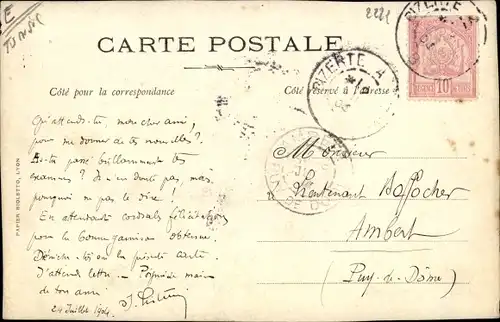 TUNSIE
2221
BIZERTE
CARTE POSTALE
BIZERTE A
REGENCE DE TUNIS
10
Côté pour la correspondance
Côté réservé à l'adresse
Qu'attends-tu, mon cher ami,
pour me donner de tes nouvelles ?
As-tu passé brillamment tes
examens ? Je n'en doute pas, mais
pourquoi ne pas le dire !
En attendant cordiales félicitations
pour la bonne garnison obtenue.
Déniche-toi en la présente carte.
J'attends lettre. — Poignée main
de ton ami
24 Juillet 1904
Monsieur
Lieutenant
Ambert
(Puy-de-Dôme)
PAPIER RIOLETTO, LYON